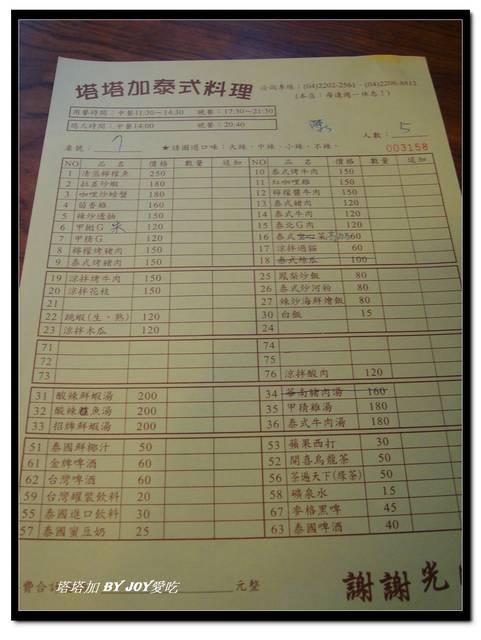 塔塔加泰式料理 洽詢專線：(04)2202-2561．(04)2206-8812
(本店：每逢週一休息！)
用餐時間：中餐11:30～14:30 晚餐：17:30～21:30
最大時間：中餐14:00 晚餐：20:40
桌號： 7 ★請圈選口味：大辣、中辣、小辣、不辣。 人數： 5
003158
NO 品名 價格 數量 追加 NO 品名 價格 數量 追加
1 清蒸檸檬魚 250 10 泰式烤牛肉 150
2 拉差炒蝦 180 11 紅咖哩雞 150
3 咖哩炒螃蟹 180 12 檸檬醬牛肉 150
4 茴香雞 160 13 泰式豬肉 120
5 辣炒透抽 150 14 泰式牛肉 120
6 甲抛G 120 15 泰北G肉 120
7 甲精G 120 16 泰式
8 檸檬烤豬肉 150 17 涼拌過貓 60
9 泰式烤豬肉 150 18 泰式絲瓜 100
19 涼拌烤牛肉 150 25 鳳梨炒飯 80
20 涼拌花枝 150 26 泰式炒河粉 80
21 27 辣炒海鮮燴飯 80
22 跳蝦(生、熟) 120 30 白飯 15
23 涼拌木瓜 120 24
71 74
72 75
73 76 涼拌酸肉 120
31 酸辣鮮蝦湯 200 34 等高豬肉湯 160
32 酸辣魚湯 200 35 甲精雞湯 180
33 招牌鮮蝦湯 200 36 泰式牛肉湯 180
51 泰國鮮椰汁 50 53 蘋果西打 30
61 金牌啤酒 60 52 開喜烏龍茶 50
62 台灣啤酒 60 56 茶適天下(綠茶) 50
59 台灣罐裝飲料 20 58 礦泉水 15
55 泰國進口飲料 30 67 麥格黑啤 45
57 泰國蜜豆奶 25 63 泰國啤酒 40
費合計 元整 謝謝光
塔塔加 BY JOY愛吃